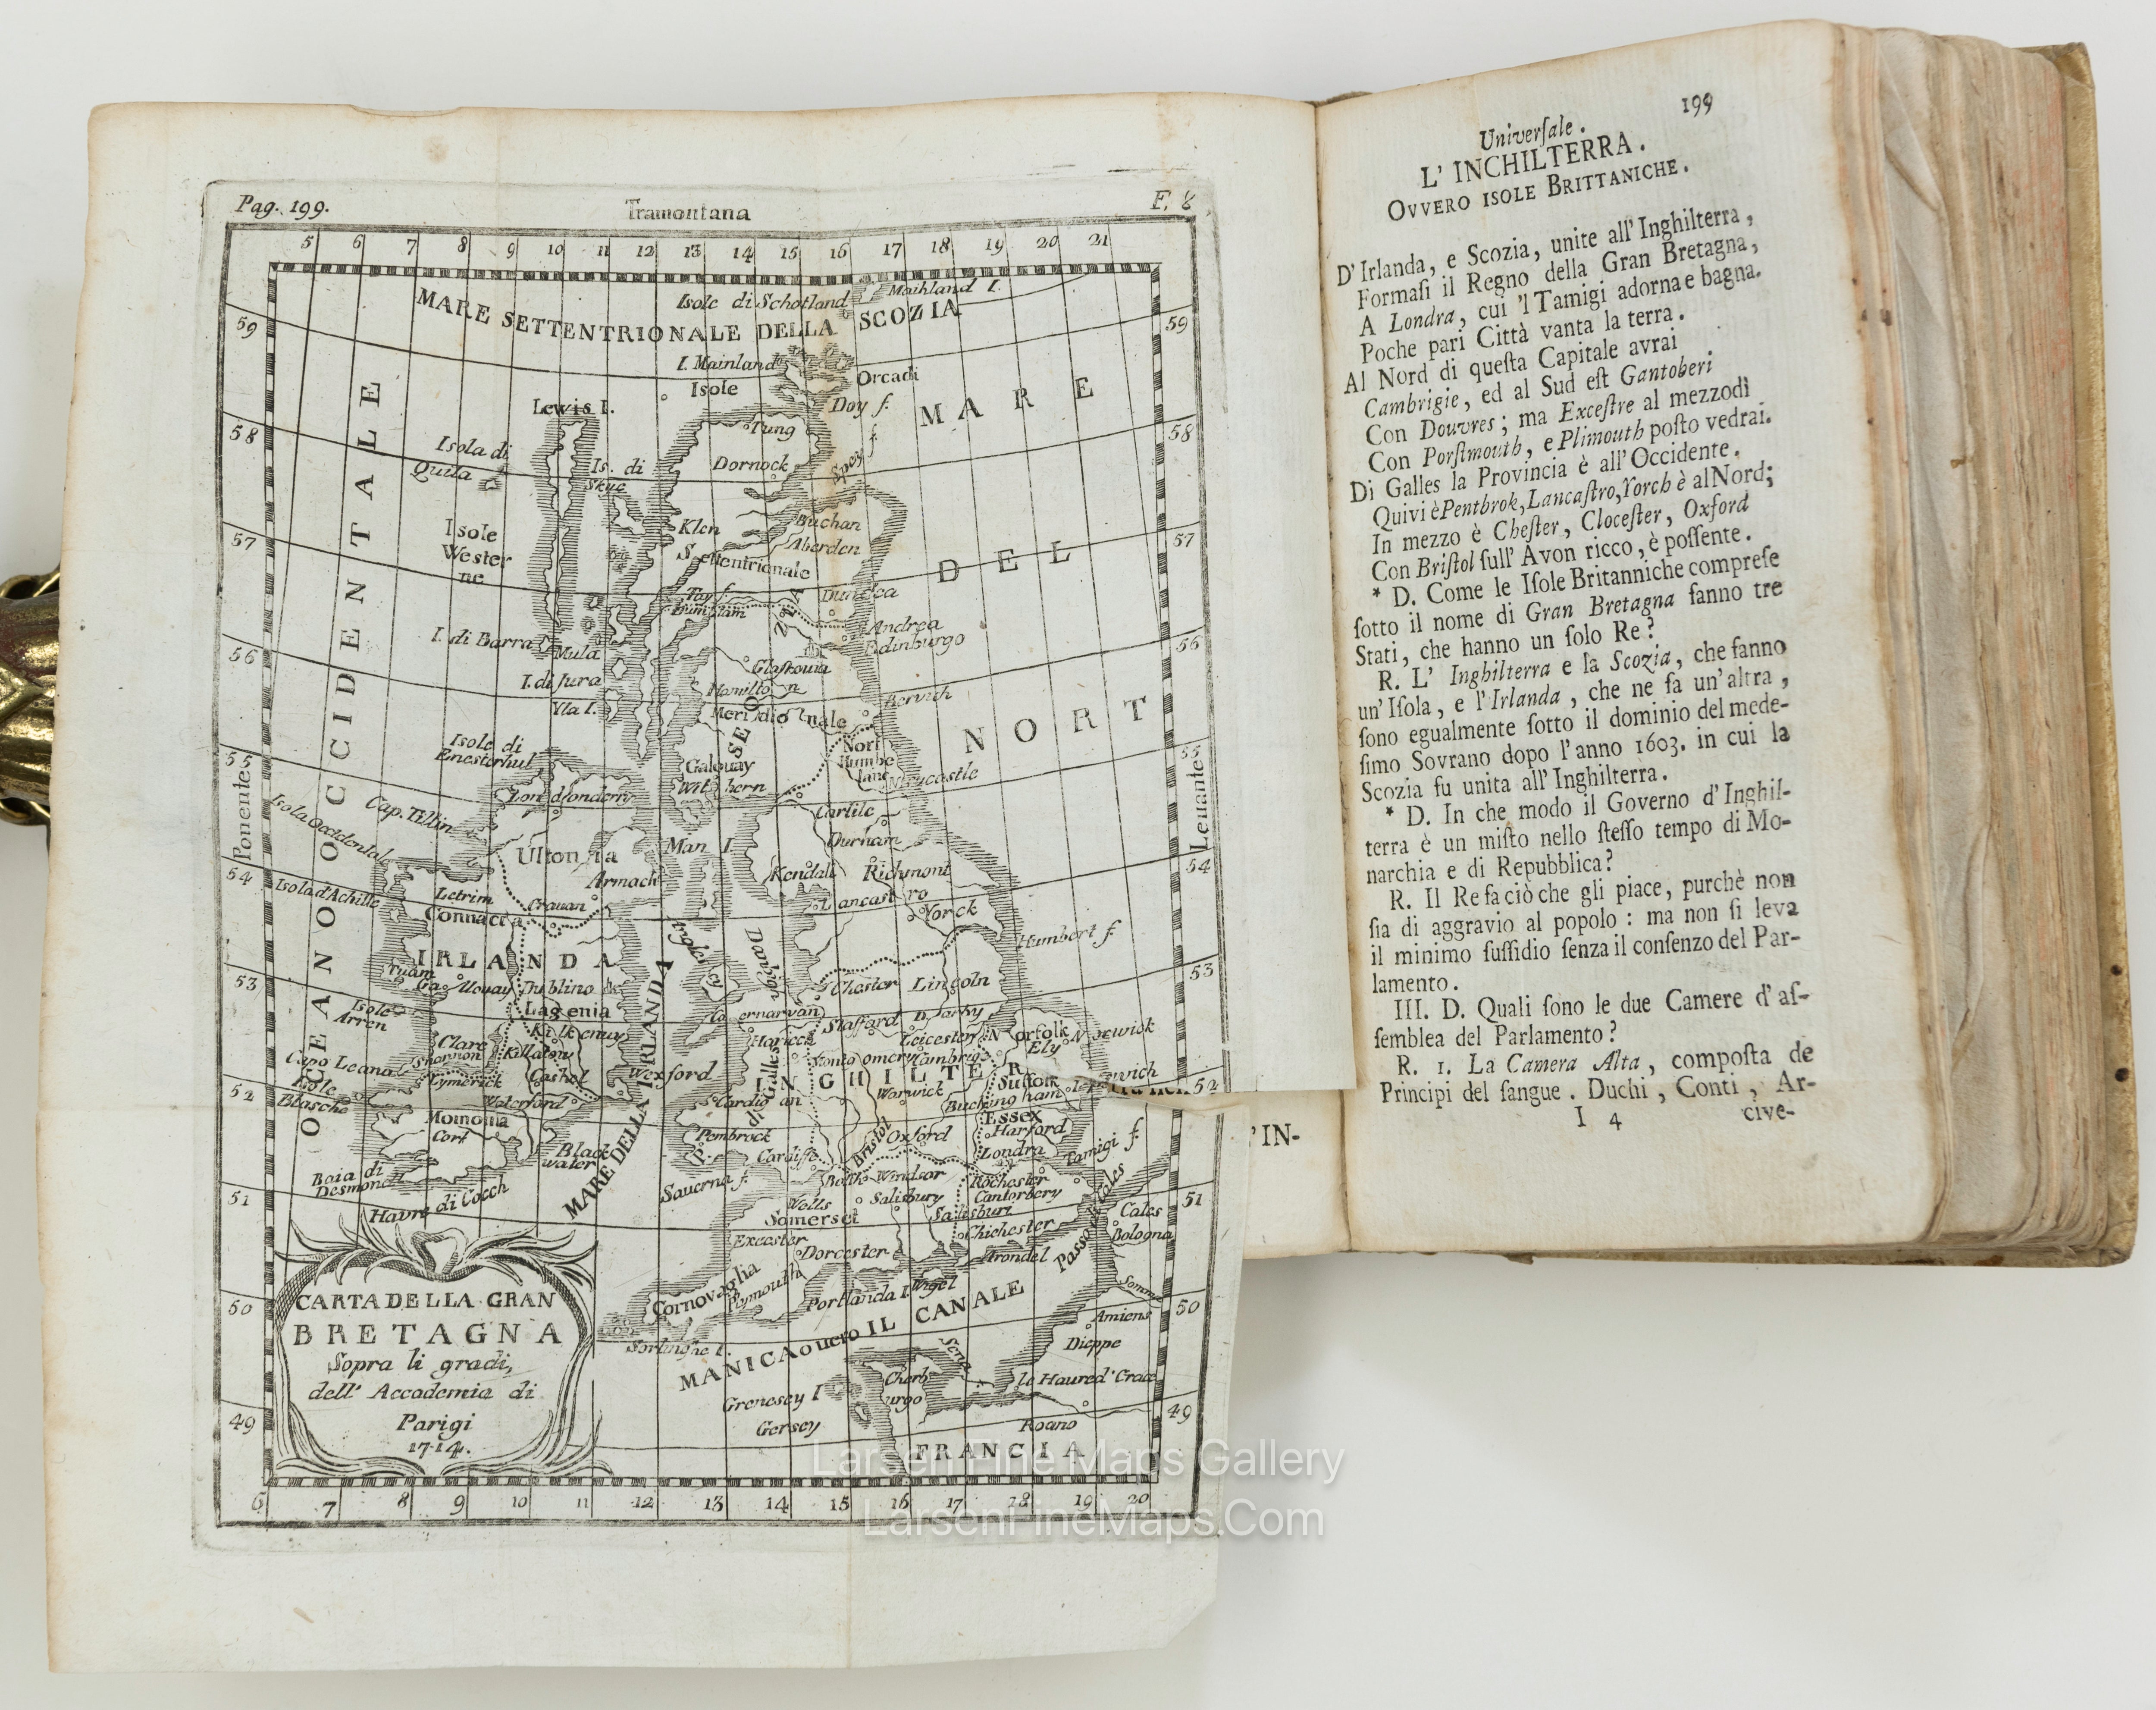 Pag. 199.
Tramontana
F. 8
5 6 7 8 9 10 11 12 13 14 15 16 17 18 19 20 21
Isole di Schotland
Mainland I.
MARE SETTENTRIONALE DELLA SCOZIA
59
59
I. Mainland
Isole
Orcadi
Lewis I.
Doy f.
MARE
Tung
58
58
Isola di
Quila
Is. di
Skye
Dornock
Spey f.
Isole
Wester
ne
Klen
Settentrionale
Buchan
Aberden
57
57
DEL
Tay f.
Dundea
I. di Barra
Mula
Andrea
Edinburgo
56
56
Glaskouia
I. di Jura
Hamilton
Yla I.
Meridio nale
Bervich
NORT
Isole di
Enesterhul
Nort
Humbe
land
55
55
Galouay
Wit hern
Newcastle
Ponente
Leuante
OCEANO OCCIDENTALE
Isola Occidentale
Cap. Tillin
Londonderry
Carlile
Durham
Ultonia
Man I.
54
54
Isola d'Achille
Armach
Kendale
Richmont
Letrim
Crauan
Lancastro
Connacta
Yorck
Humbert f.
IRLANDA
Anglesey
53
53
Tuam
Gallouay
Dublino
Chester
Lincoln
Isole
Arren
Lagenia
Caernarvan
Stafford
Darby
Kilkenny
Leicester
Norfolk
Clare
Killalow
Ely
Shannon
Capo Leane
Montgomery
Cambrig
Lymerick
Cashel
Wexford
INGHILTER
52
52
Isole
Blasche
Waterford
Cardigan
Warwick
Suffolk
Buchingham
Momonia
Essex
Cork
Pembrock
Oxford
Harford
Black
water
Cardiffe
Bristol
Londra
Tamigi f.
Baia di
Desmond
Saverna f.
Bath
Windsor
Rochester
Cantorbery
Havre di Coech
Wells
Salisbury
51
51
MARE DELLA IRLANDA
Somerset
Salisburi
Cales
Chichester
Bologna
Excester
Dorcester
Arondel
Passo di Cales
Cornovaglia
Plymouth
Portlanda I.
Wigel
Somme
50
50
Sorlinghe I.
MANICA ouero IL CANALE
Amiens
Dieppe
Sena
Cherb
urgo
le Haured'Grace
Grenesey I
Gersey
Roano
49
49
FRANCIA
CARTA DELLA GRAN
BRETAGNA
Sopra li gradi,
dell' Accademia di
Parigi
1714.
6 7 8 9 10 11 12 13 14 15 16 17 18 19 20
'IN-
199
Universale.
L' INCHILTERRA.
OVVERO ISOLE BRITTANICHE.
D'Irlanda, e Scozia, unite all' Inghilterra,
Formasi il Regno della Gran Bretagna,
A Londra, cui 'l Tamigi adorna e bagna.
Poche pari Città vanta la terra.
Al Nord di questa Capitale avrai
Cambrigie, ed al Sud est Gantoberi
Con Douvres; ma Excestre al mezzodì
Con Porstmouth, e Plimouth posto vedrai.
Di Galles la Provincia è all' Occidente.
Quivi è Pentbrok, Lancastro, Yorch è al Nord;
In mezzo è Chester, Clocester, Oxford
Con Bristol sull' Avon ricco, è possente.
* D. Come le Isole Britanniche comprese
sotto il nome di Gran Bretagna fanno tre
Stati, che hanno un solo Re?
R. L' Inghilterra e la Scozia, che fanno
un' Isola, e l' Irlanda, che ne fa un' altra,
sono egualmente sotto il dominio del mede-
simo Sovrano dopo l' anno 1603. in cui la
Scozia fu unita all' Inghilterra.
* D. In che modo il Governo d' Inghil-
terra è un misto nello stesso tempo di Mo-
narchia e di Repubblica?
R. Il Re fa ciò che gli piace, purchè non
sia di aggravio al popolo: ma non si leva
il minimo sussidio senza il consenzo del Par-
lamento.
III. D. Quali sono le due Camere d' as-
semblea del Parlamento?
R. 1. La Camera Alta, composta de
Principi del sangue. Duchi, Conti, Ar-
I 4
cive-
Larsen Fine Maps Gallery
LarsenFineMaps.Com